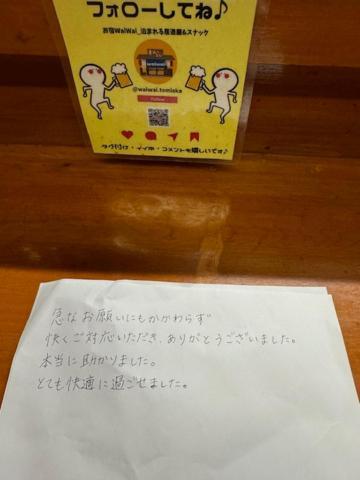 フォローしてね♪
お宿WaiWai_泊まれる居酒屋&スナック
waiwai
@waiwai.tomioka
Follow
タグ付け・イイネ・コメントも嬉しいです♪
急なお願いにもかかわらず
快くご対応いただき、ありがとうございました。
本当に助かりました。
とても快適に過ごせました。